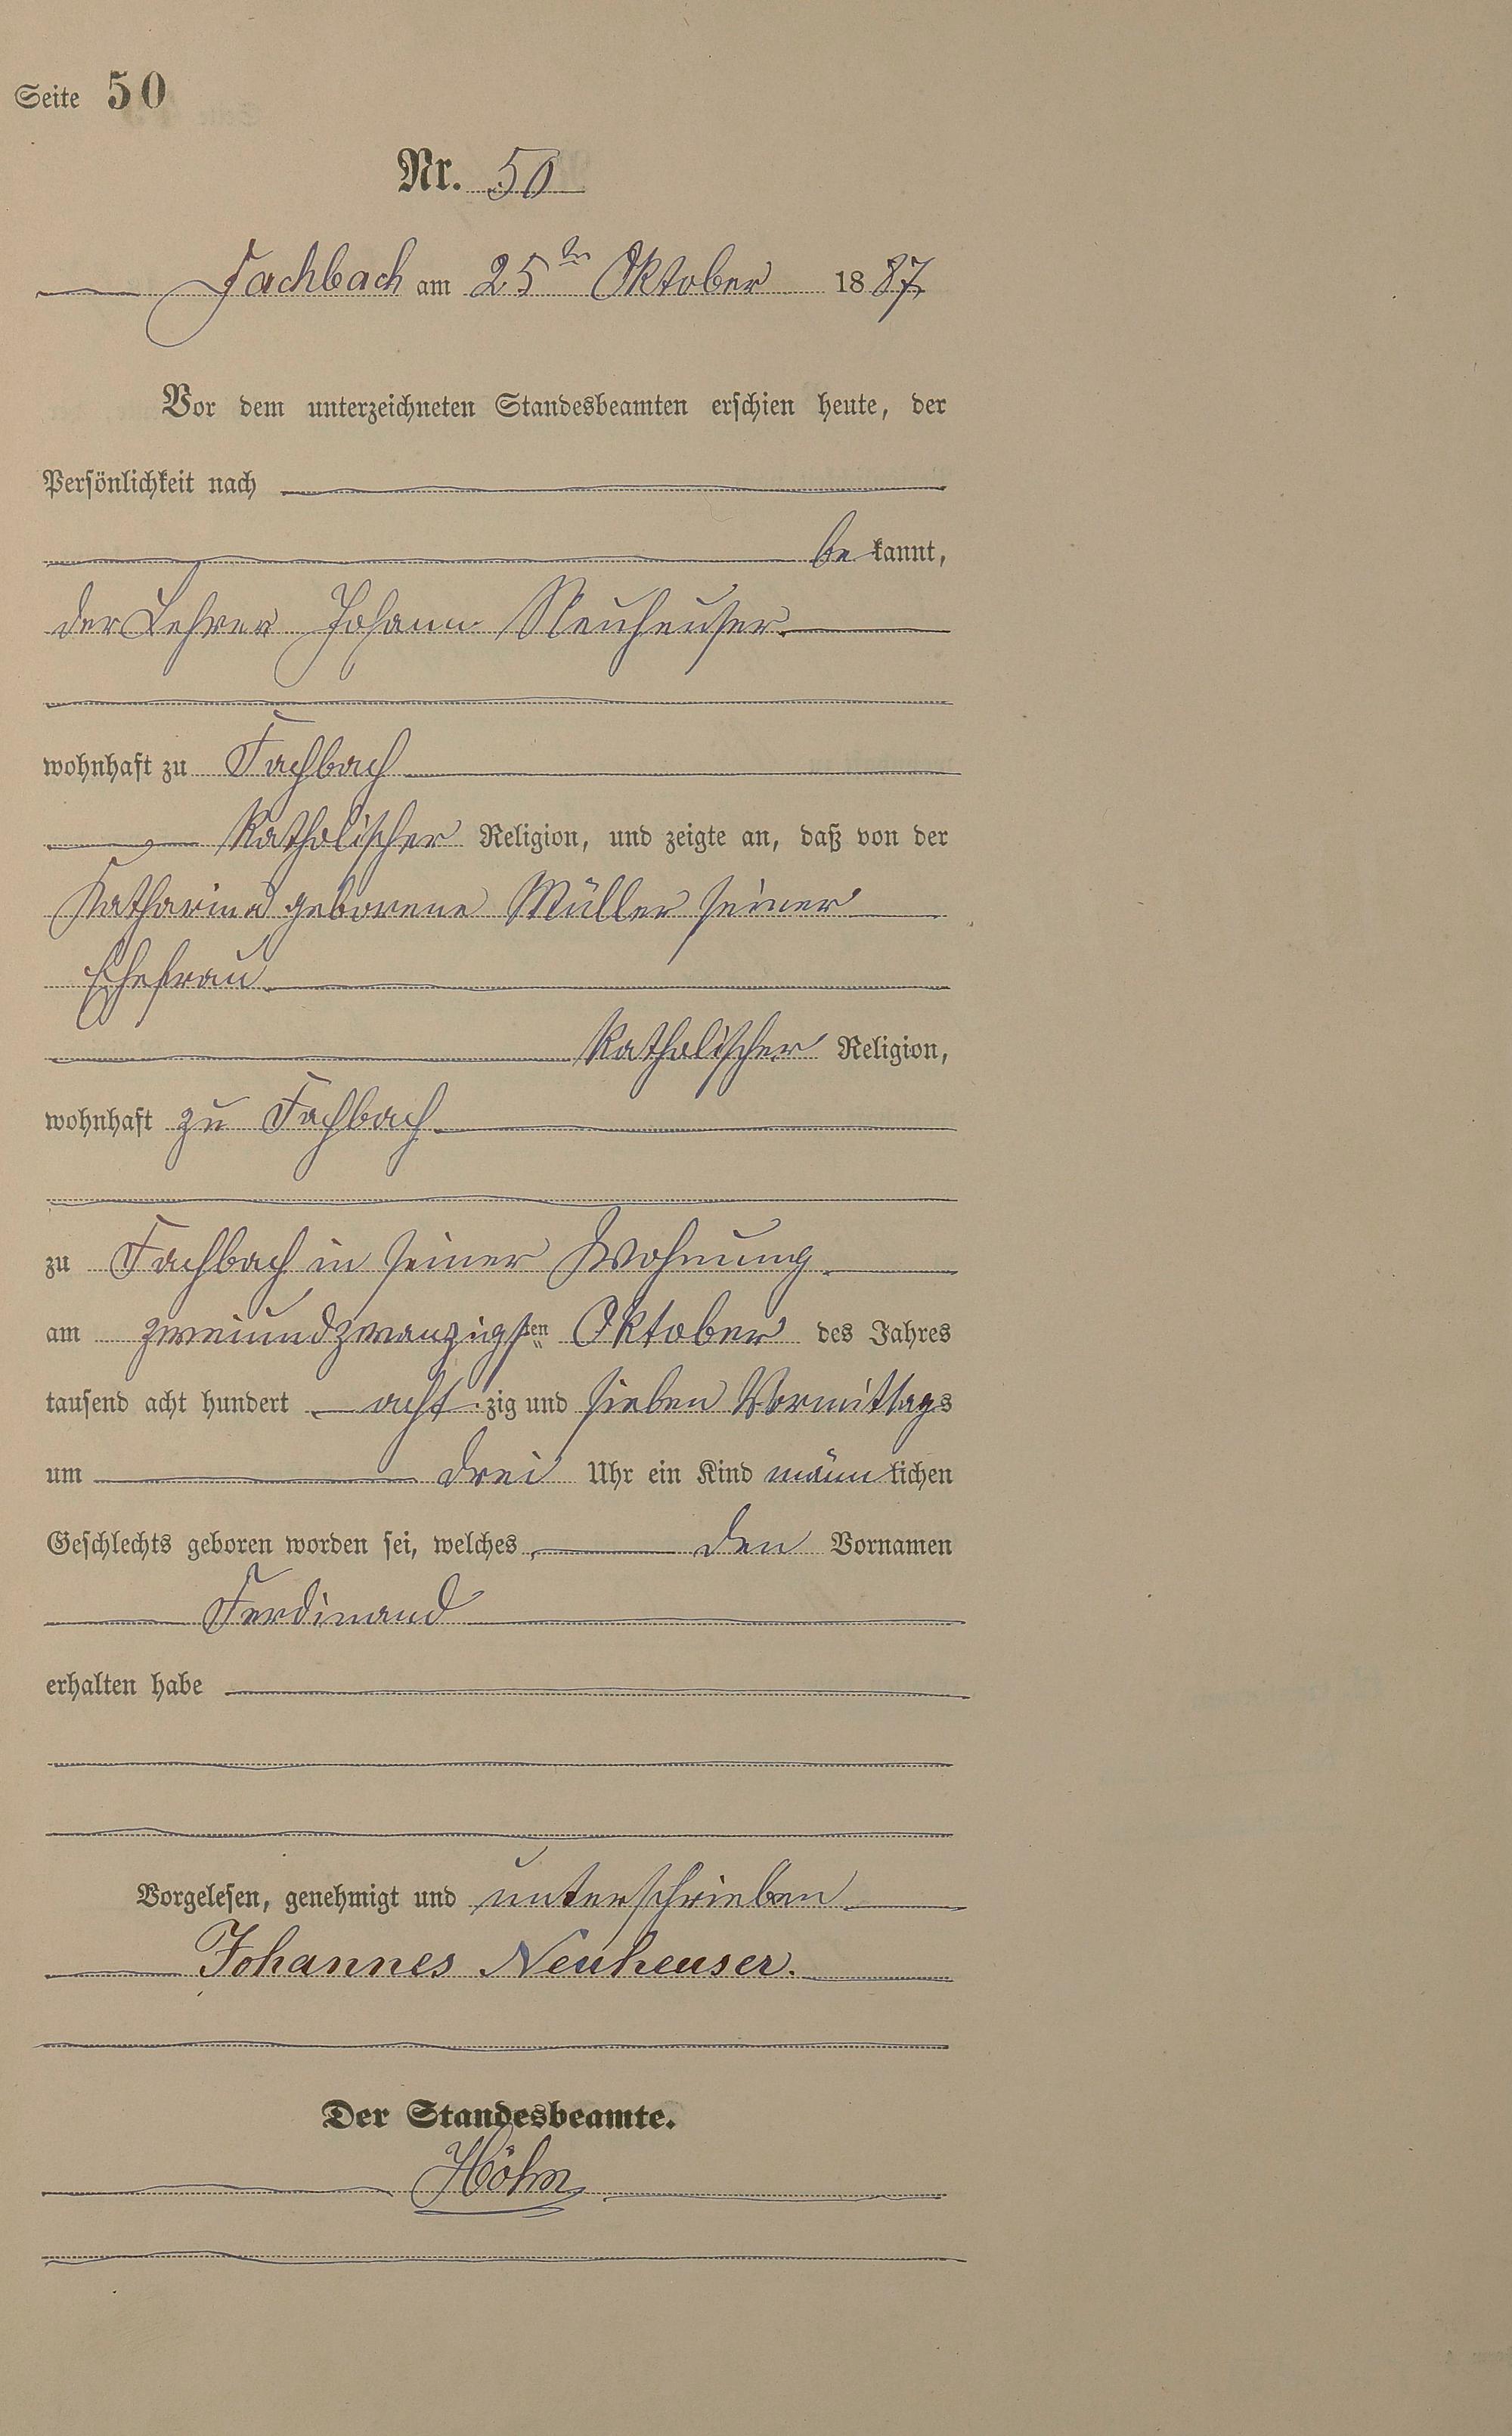 Seite 50
Nr. 50
Fachbach am 25ten Oktober 1887
Vor dem unterzeichneten Standesbeamten erschien heute, der
Persönlichkeit nach
be kannt,
der Lehrer Johann Neuheuser
wohnhaft zu Fachbach
katholischer Religion, und zeigte an, daß von der
Katharina geborene Müller seiner
Ehefrau
katholischer Religion,
wohnhaft zu Fachbach
zu Fachbach in seiner Wohnung
am zweiundzwanzigsten Oktober des Jahres
tausend acht hundert acht zig und sieben Vormittags
um drei Uhr ein Kind männ lichen
Geschlechts geboren worden sei, welches den Vornamen
Ferdinand
erhalten habe
Vorgelesen, genehmigt und unterschrieben
Johannes Neuheuser.
Der Standesbeamte.
Höhn